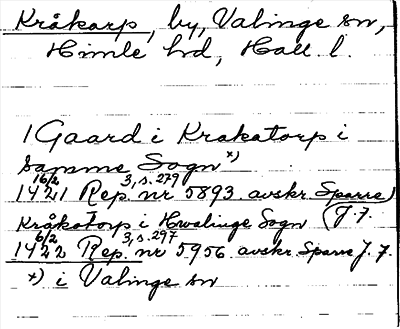 Kråkarp, by, Valinge sn,
Himle hd, Hall. l.
1 Gaard i Krakatorp i
samme Sogn x)
16/2 3, s. 279
1421 Rep. nr 5893 avskr. Sparre)
Kråkatorp i Hwalinge Sogn (J. 7.
6/2 3, s. 297
1422 Rep. nr 5956 avskr. Sparre J. 7.
x) i Valinge sn